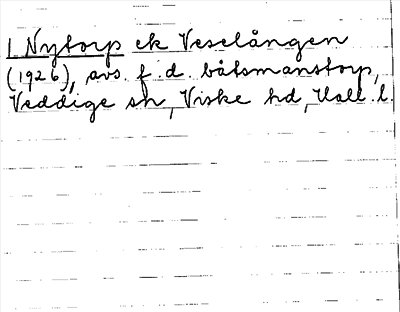 1 Nytorp ek Veselången
(1926), avs. f.d. båtsmanstorp,
Veddige sn, Viske hd, Hall. l.